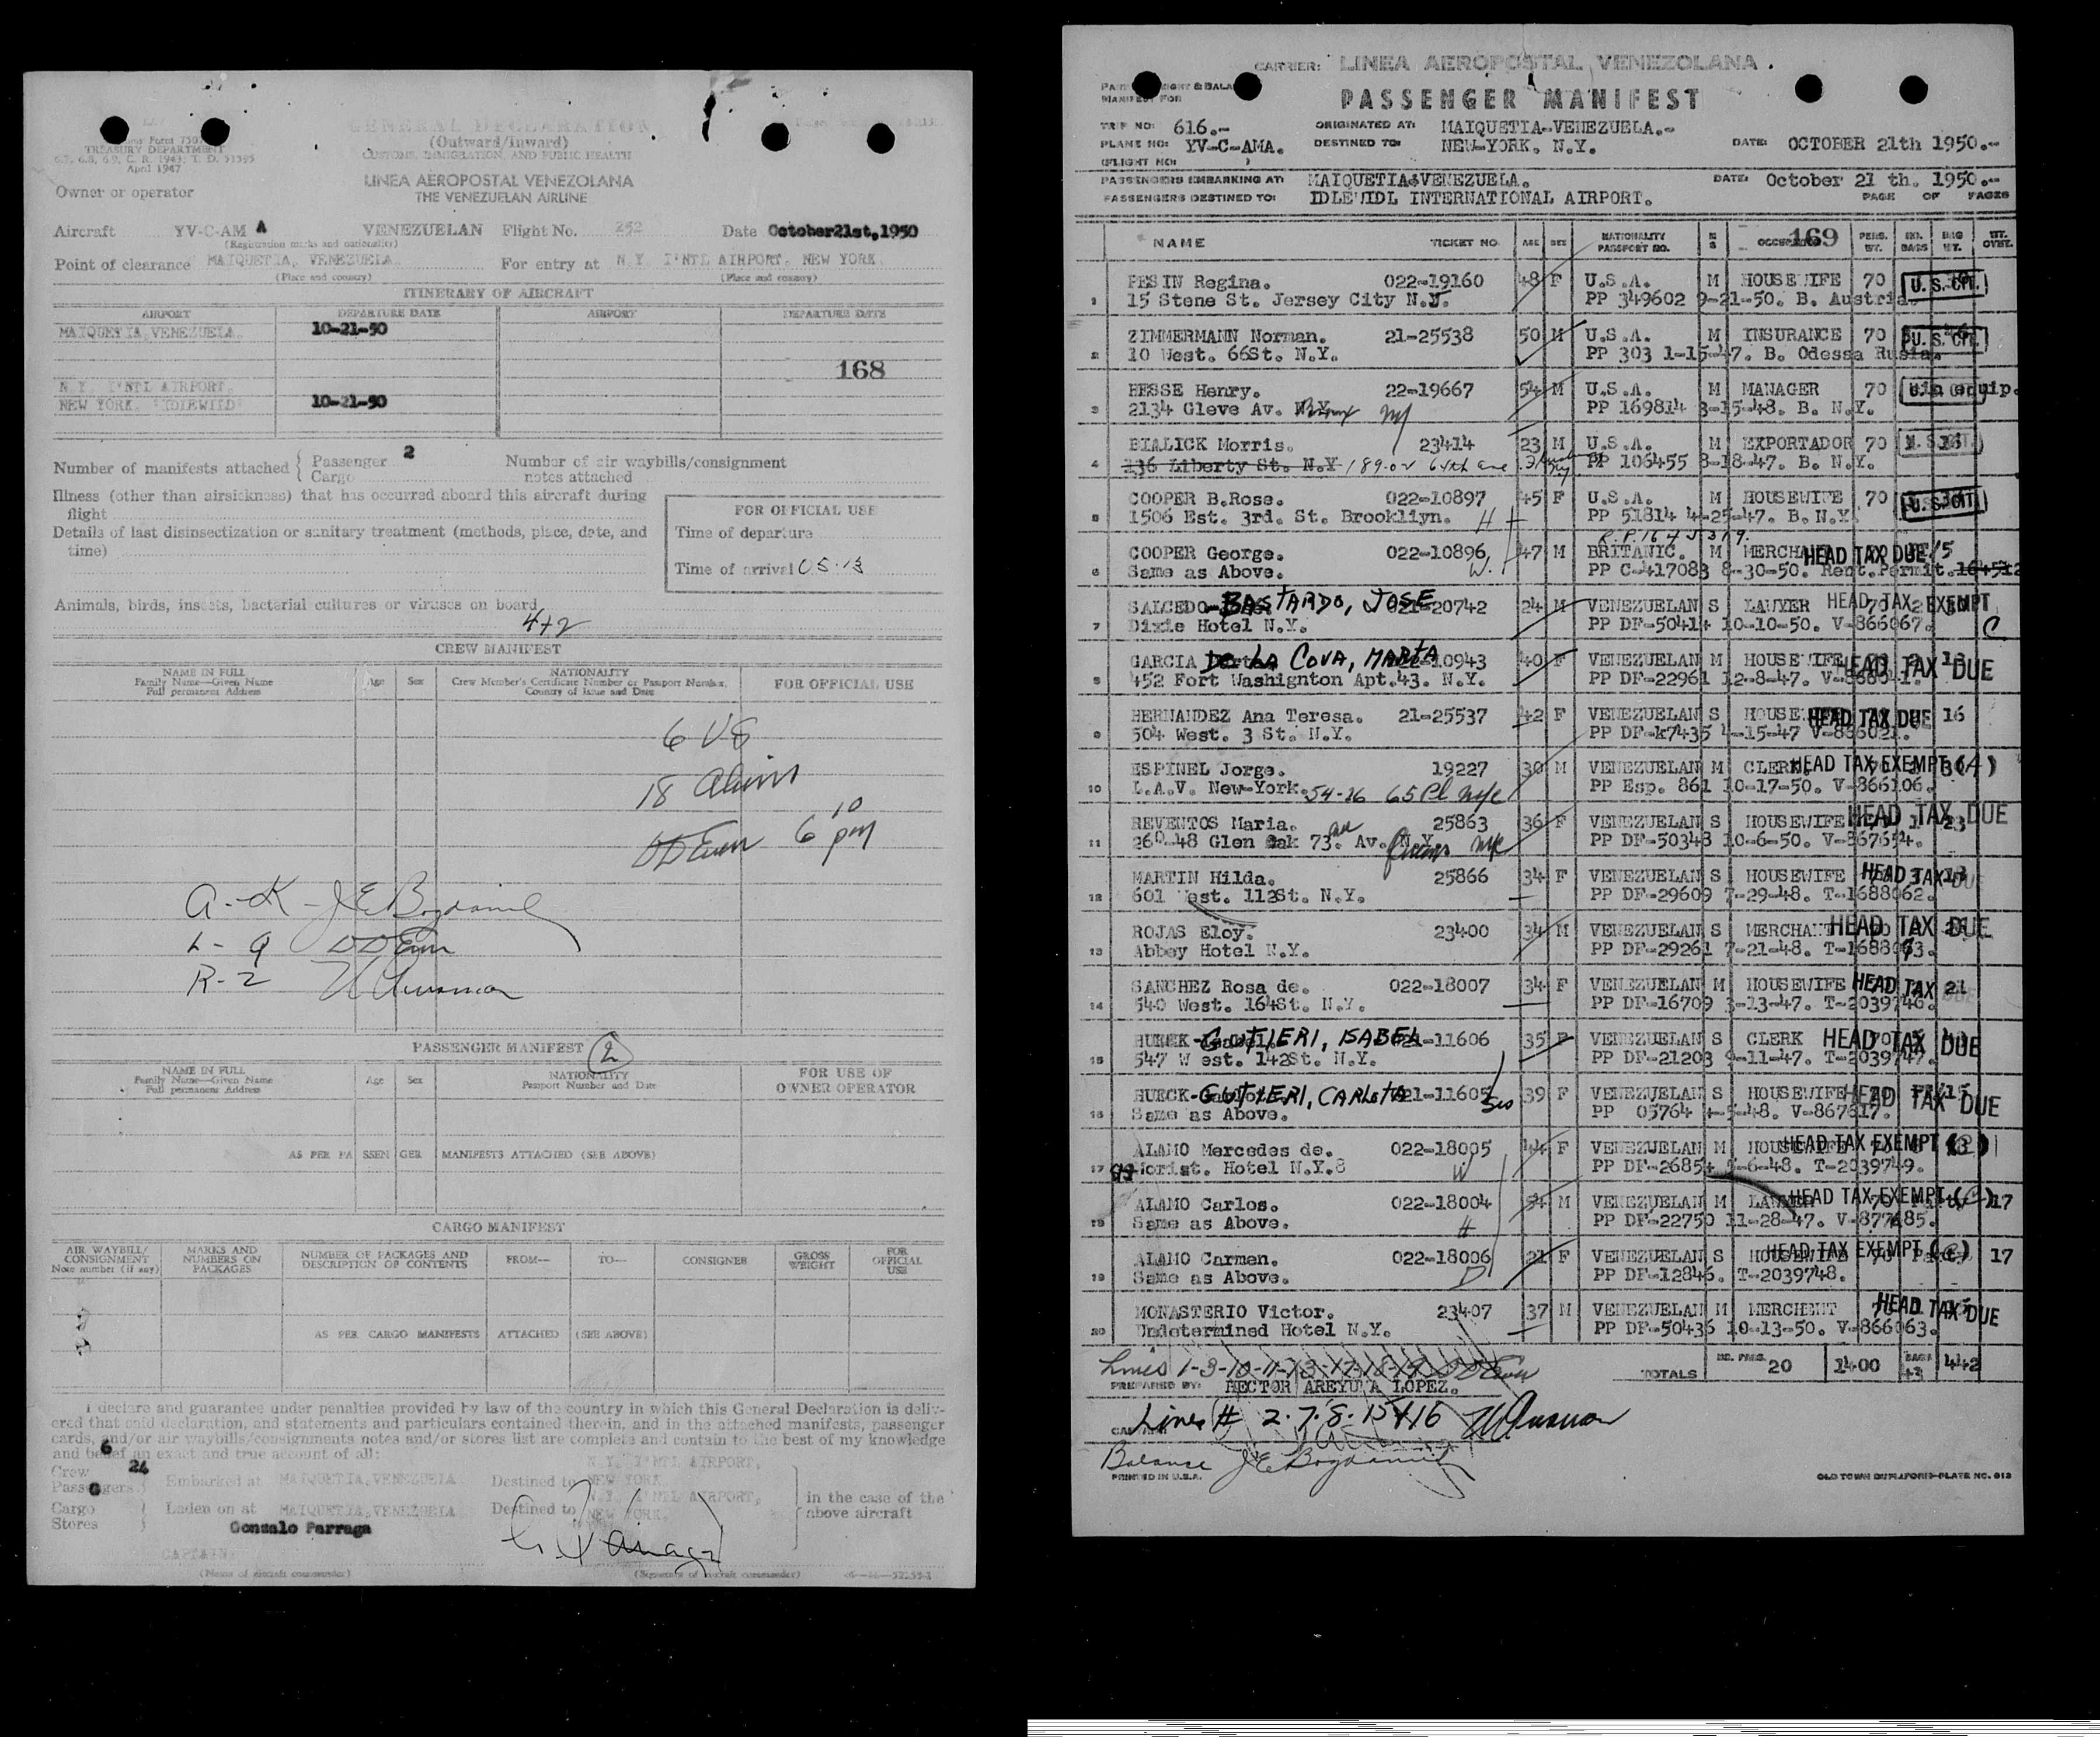 TREASURY DEPARTMENT
April 1947
GENERAL DECLARATION
(Outward/Inward)
CUSTOMS, IMMIGRATION, AND PUBLIC HEALTH
LINEA AEROPOSTAL VENEZOLANA
THE VENEZUELAN AIRLINE
Owner or operator
Aircraft YV-C-AM A VENEZUELAN Flight No. 252 Date October21st,1950
(Registration marks and nationality)
Point of clearance MAIQUETIA, VENEZUELA. For entry at N.Y. I'NTL AIRPORT, NEW YORK
(Place and country) (Place and country)
ITINERARY OF AIRCRAFT
AIRPORT DEPARTURE DATE AIRPORT DEPARTURE DATE
MAIQUETIA, VENEZUELA. 10-21-50
168
N.Y. I'NTL AIRPORT,
NEW YORK. "IDLEWILD" 10-21-50
Number of manifests attached { Passenger 2
Cargo
Number of air waybills/consignment
notes attached
Illness (other than airsickness) that has occurred aboard this aircraft during
flight
Details of last disinsectization or sanitary treatment (methods, place, date, and
time)
FOR OFFICIAL USE
Time of departure
Time of arrival 05.13
Animals, birds, insects, bacterial cultures or viruses on board
4+2
CREW MANIFEST
NAME IN FULL
Family Name—Given Name
Full permanent Address
Age Sex
NATIONALITY
Crew Member's Certificate Number or Passport Number,
Country of Issue and Date
FOR OFFICIAL USE
6 US
18 Aliens
10
6 pm
A.-K - J E Bogdanich
L- 9
R-2
PASSENGER MANIFEST 2
NAME IN FULL
Family Name—Given Name
Full permanent Address
Age Sex
NATIONALITY
Passport Number and Date
FOR USE OF
OWNER OPERATOR
AS PER PA SSEN GER MANIFESTS ATTACHED (SEE ABOVE)
CARGO MANIFEST
AIR WAYBILL/
CONSIGNMENT
Note number (if any)
MARKS AND
NUMBERS ON
PACKAGES
NUMBER OF PACKAGES AND
DESCRIPTION OF CONTENTS
FROM— TO— CONSIGNEE
GROSS
WEIGHT
FOR
OFFICIAL
USE
AS PER CARGO MANIFESTS ATTACHED (SEE ABOVE)
I declare and guarantee under penalties provided by law of the country in which this General Declaration is deliv-
ered that said declaration, and statements and particulars contained therein, and in the attached manifests, passenger
cards, and/or air waybills/consignments notes and/or stores list are complete and contain to the best of my knowledge
and belief an exact and true account of all:
Crew 6
Passengers 24
Cargo 0
Stores
Embarked at MAIQUETIA, VENEZUELA
Destined to N.Y. I'NTL AIRPORT, NEW YORK
Laden on at MAIQUETIA, VENEZUELA
Destined to N.Y. I'NTL AIRPORT, NEW YORK.
in the case of the
above aircraft
Gonzalo Parraga
CAPTAIN
(Name of aircraft commander) (Signature of aircraft commander)
CARRIER: LINEA AEROPOSTAL VENEZOLANA.
PASSENGER MANIFEST
TRIP NO: 616.- ORIGINATED AT: MAIQUETIA-VENEZUELA.-
PLANE NO: YV-C-AMA. DESTINED TO: NEW-YORK, N.Y. DATE: OCTOBER 21th 1950.-
(FLIGHT NO: )
PASSENGERS EMBARKING AT: MAIQUETIA-VENEZUELA. DATE: October 21 th. 1950.-
PASSENGERS DESTINED TO: IDLEWIDL INTERNATIONAL AIRPORT. PAGE OF PAGES
169
NAME TICKET NO. AGE SEX NATIONALITY PASSPORT NO. M S OCCUPATION PERS. WT. NO. BAGS BAG WT. WT. OVER.
1 PESIN Regina. 022-19160 48 F U.S.A. M HOUSEWIFE 70 U.S. CIT.
15 Stene St. Jersey City N.J. PP 349602 9-21-50. B. Austria.
2 ZIMMERMANN Norman. 21-25538 50 M U.S.A. M INSURANCE 70 U.S. CIT.
10 West. 66St. N.Y. PP 303 1-15-47. B. Odessa Rusia.
3 HESSE Henry. 22-19667 54 M U.S.A. M MANAGER 70 Sin equip.
2134 Gleve Av. N.Y. Bronx NY PP 169814 3-15-48. B. N.Y.
4 BIALICK Morris. 23414 23 M U.S.A. M EXPORTADOR 70 U.S. CIT.
136 Liberty St. N.Y 189-02 64th ave PP 106455 8-18-47. B. N.Y.
5 COOPER B.Rose. 022-10897 45 F U.S.A. M HOUSEWIFE 70 U.S. CIT.
1506 Est. 3rd. St. Brookliyn. H PP 51814 4-25-47. B. N.Y.
R.P. 1645319.
6 COOPER George. 022-10896 W. 47 M BRITANIC. M MERCHANT HEAD TAX DUE
Same as Above. PP C-417083 8-30-50. Rent.Permit.
7 SALCEDO-BASTARDO, JOSE 021-20742 24 M VENEZUELAN S LAWYER HEAD TAX EXEMPT
Dixie Hotel N.Y. PP DF-50414 10-10-50. V-866067. C
8 GARCIA De LA COVA, MARTA 022-10943 40 F VENEZUELAN M HOUSEWIFE HEAD TAX DUE
452 Fort Washignton Apt.43. N.Y. PP DF-22961 12-8-47.
9 HERNANDEZ Ana Teresa. 21-25537 42 F VENEZUELAN S HOUSEWIFE HEAD TAX DUE 16
504 West. 3 St. N.Y. PP DF-k7435 4-15-47 V-866021.
10 ESPINEL Jorge. 19227 30 M VENEZUELAN M CLERK HEAD TAX EXEMPT (4)
L.A.V. New-York. 54-26 65 Pl NYC PP Esp. 861 10-17-50. V-866106.
11 REVENTOS Maria. 25863 36 F VENEZUELAN S HOUSEWIFE HEAD TAX DUE 23
260-48 Glen Oak 73. Av. N.Y. Queens NYC PP DF-50348 10-6-50. V-867654.
12 MARTIN Hilda. 25866 34 F VENEZUELAN S HOUSEWIFE HEAD TAX DUE
601 West. 112St. N.Y. PP DF-29609 7-29-48. T-1688062.
13 ROJAS Eloy. 23400 34 M VENEZUELAN S MERCHANT HEAD TAX DUE
Abbey Hotel N.Y. PP DF-29261 7-21-48.
14 SANCHEZ Rosa de. 022-18007 34 F VENEZUELAN M HOUSEWIFE HEAD TAX DUE 21
540 West. 164St. N.Y. PP DF-16709 3-13-47. T-2039746.
15 HUECK-GUTIERI, ISABEL 021-11606 35 F VENEZUELAN S CLERK HEAD TAX DUE
547 W est. 142St. N.Y. PP DF-21203 9-11-47. T-2039747.
16 HUECK-GUTIERI, CARLOTA 021-11605 Sis 39 F VENEZUELAN S HOUSEWIFE HEAD TAX DUE
Same as Above. PP 05764 4-5-48. V-867617.
17 ALAMO Mercedes de. 022-18005 44 F VENEZUELAN M HOUSEWIFE HEAD TAX EXEMPT (C)
Hotel N.Y. W PP DF-26854 5-6-48. T-2039749.
18 ALAMO Carlos. 022-18004 54 M VENEZUELAN M LAWYER HEAD TAX EXEMPT (C) 17
Same as Above. H PP DF-22750 11-28-47. V-877685.
19 ALAMO Carmen. 022-18006 21 F VENEZUELAN S HOUSEWIFE HEAD TAX EXEMPT (C) 17
Same as Above. D PP DF-12846. T-2039748.
20 MONASTERIO Victor. 23407 37 M VENEZUELAN M MERCHENT HEAD TAX DUE
Undetermined Hotel N.Y. PP DF-50436 10-13-50. V-866063.
Lines 1-3-10-11-13-17-18-19
TOTALS NO. PASS. 20 1400 BAGS 43 442
PREPARED BY: HECTOR AREYUNA LOPEZ.
Lines # 2.7.8.15 + 16
Balance J E Bogdanich
PRINTED IN U.S.A.